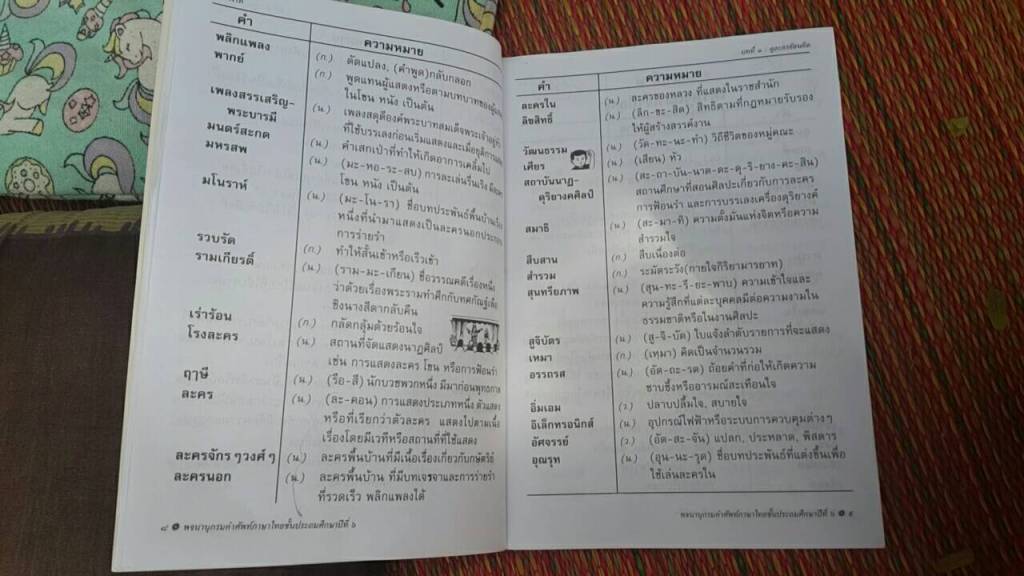 คำ
ความหมาย
พลิกแพลง (ก.) ดัดแปลง, (คำพูด) กลับกลอก
พากย์ (ก.) พูดแทนผู้แสดงหรือตามบทบาทของผู้แสดง
ในโขน หนัง เป็นต้น
เพลงสรรเสริญ- (น.) เพลงสดุดีองค์พระบาทสมเด็จพระเจ้าอยู่หัว
พระบารมี ที่ใช้บรรเลงก่อนเริ่มแสดงและเมื่อยุติการแสดง
มนตร์สะกด (น.) คำเสกเป่าที่ทำให้เกิดอาการเคลิ้มไป
มหรสพ (น.) (มะ-หอ-ระ-สบ) การละเล่นรื่นเริง
โขน หนัง เป็นต้น
มโนราห์ (น.) (มะ-โน-รา) ชื่อบทประพันธ์พื้นบ้าน
หนึ่งที่นำมาแสดงเป็นละครนอกประกอบ
การร่ายรำ
รวบรัด (ก.) ทำให้สั้นเข้าหรือเร็วเข้า
รามเกียรติ์ (น.) (ราม-มะ-เกียน) ชื่อวรรณคดีเรื่องหนึ่ง
ว่าด้วยเรื่องพระรามทำศึกกับทศกัณฐ์เพื่อ
ชิงนางสีดากลับคืน
เร่าร้อน (ก.) กลัดกลุ้มด้วยร้อนใจ
โรงละคร (น.) สถานที่จัดแสดงนาฏศิลป์
เช่น การแสดงละคร โขน หรือการฟ้อนรำ
ฤๅษี (น.) (รือ-สี) นักบวชพวกหนึ่ง มีมาก่อนพุทธกาล
ละคร (น.) (ละ-คอน) การแสดงประเภทหนึ่ง ตัวแสดง
หรือที่เรียกว่าตัวละคร แสดงไปตามเนื้อ
เรื่องโดยมีเวทีหรือสถานที่ที่ใช้แสดง
ละครจักร ๆ วงศ์ ๆ (น.) ละครพื้นบ้านที่มีเนื้อเรื่องเกี่ยวกับกษัตริย์
ละครนอก (น.) ละครพื้นบ้าน ที่มีบทเจรจาและการร่ายรำ
ที่รวดเร็ว พลิกแพลงได้
๘ พจนานุกรมคำศัพท์ภาษาไทยชั้นประถมศึกษาปีที่ ๖
บทที่ ๑ :
คำ ความหมาย
ละครใน (น.) ละครของหลวง ที่แสดงในราชสำนัก
ลิขสิทธิ์ (น.) (ลิก-ขะ-สิด) สิทธิตามที่กฎหมายรับรอง
ให้ผู้สร้างสรรค์งาน
วัฒนธรรม (น.) (วัด-ทะ-นะ-ทำ) วิถีชีวิตของหมู่คณะ
เศียร (น.) (เสียน) หัว
สถาบันนาฏ- (น.) (สะ-ถา-บัน-นาด-ตะ-ดุ-ริ-ยาง-คะ-สิน)
ดุริยางคศิลป์ สถานศึกษาที่สอนศิลปะเกี่ยวกับการละคร
การฟ้อนรำ และการบรรเลงเครื่องดุริยางค์
สมาธิ (น.) (สะ-มา-ทิ) ความตั้งมั่นแห่งจิตหรือความ
สำรวมใจ
สืบสาน (ก.) สืบเนื่องต่อ
สำรวม (ก.) ระมัดระวัง(กายใจกิริยามารยาท)
สุนทรียภาพ (น.) (สุน-ทะ-รี-ยะ-พาบ) ความเข้าใจและ
ความรู้สึกที่แต่ละบุคคลมีต่อความงามใน
ธรรมชาติหรือในงานศิลปะ
สูจิบัตร (น.) (สู-จิ-บัด) ใบแจ้งลำดับรายการที่จะแสดง
เหมา (ก.) (เหมา) คิดเป็นจำนวนรวม
อรรถรส (น.) (อัด-ถะ-รด) ถ้อยคำที่ก่อให้เกิดความ
ซาบซึ้งหรืออารมณ์สะเทือนใจ
อิ่มเอม (ว.) ปลาบปลื้มใจ, สบายใจ
อิเล็กทรอนิกส์ (น.) อุปกรณ์ไฟฟ้าหรือระบบการควบคุมต่างๆ
อัศจรรย์ (ว.) (อัด-สะ-จัน) แปลก, ประหลาด, พิสดาร
อุณรุท (น.) (อุน-นะ-รุด) ชื่อบทประพันธ์ที่แต่งขึ้นเพื่อ
ใช้เล่นละครใน
พจนานุกรมคำศัพท์ภาษาไทยชั้นประถมศึกษาปีที่ ๖ ๙